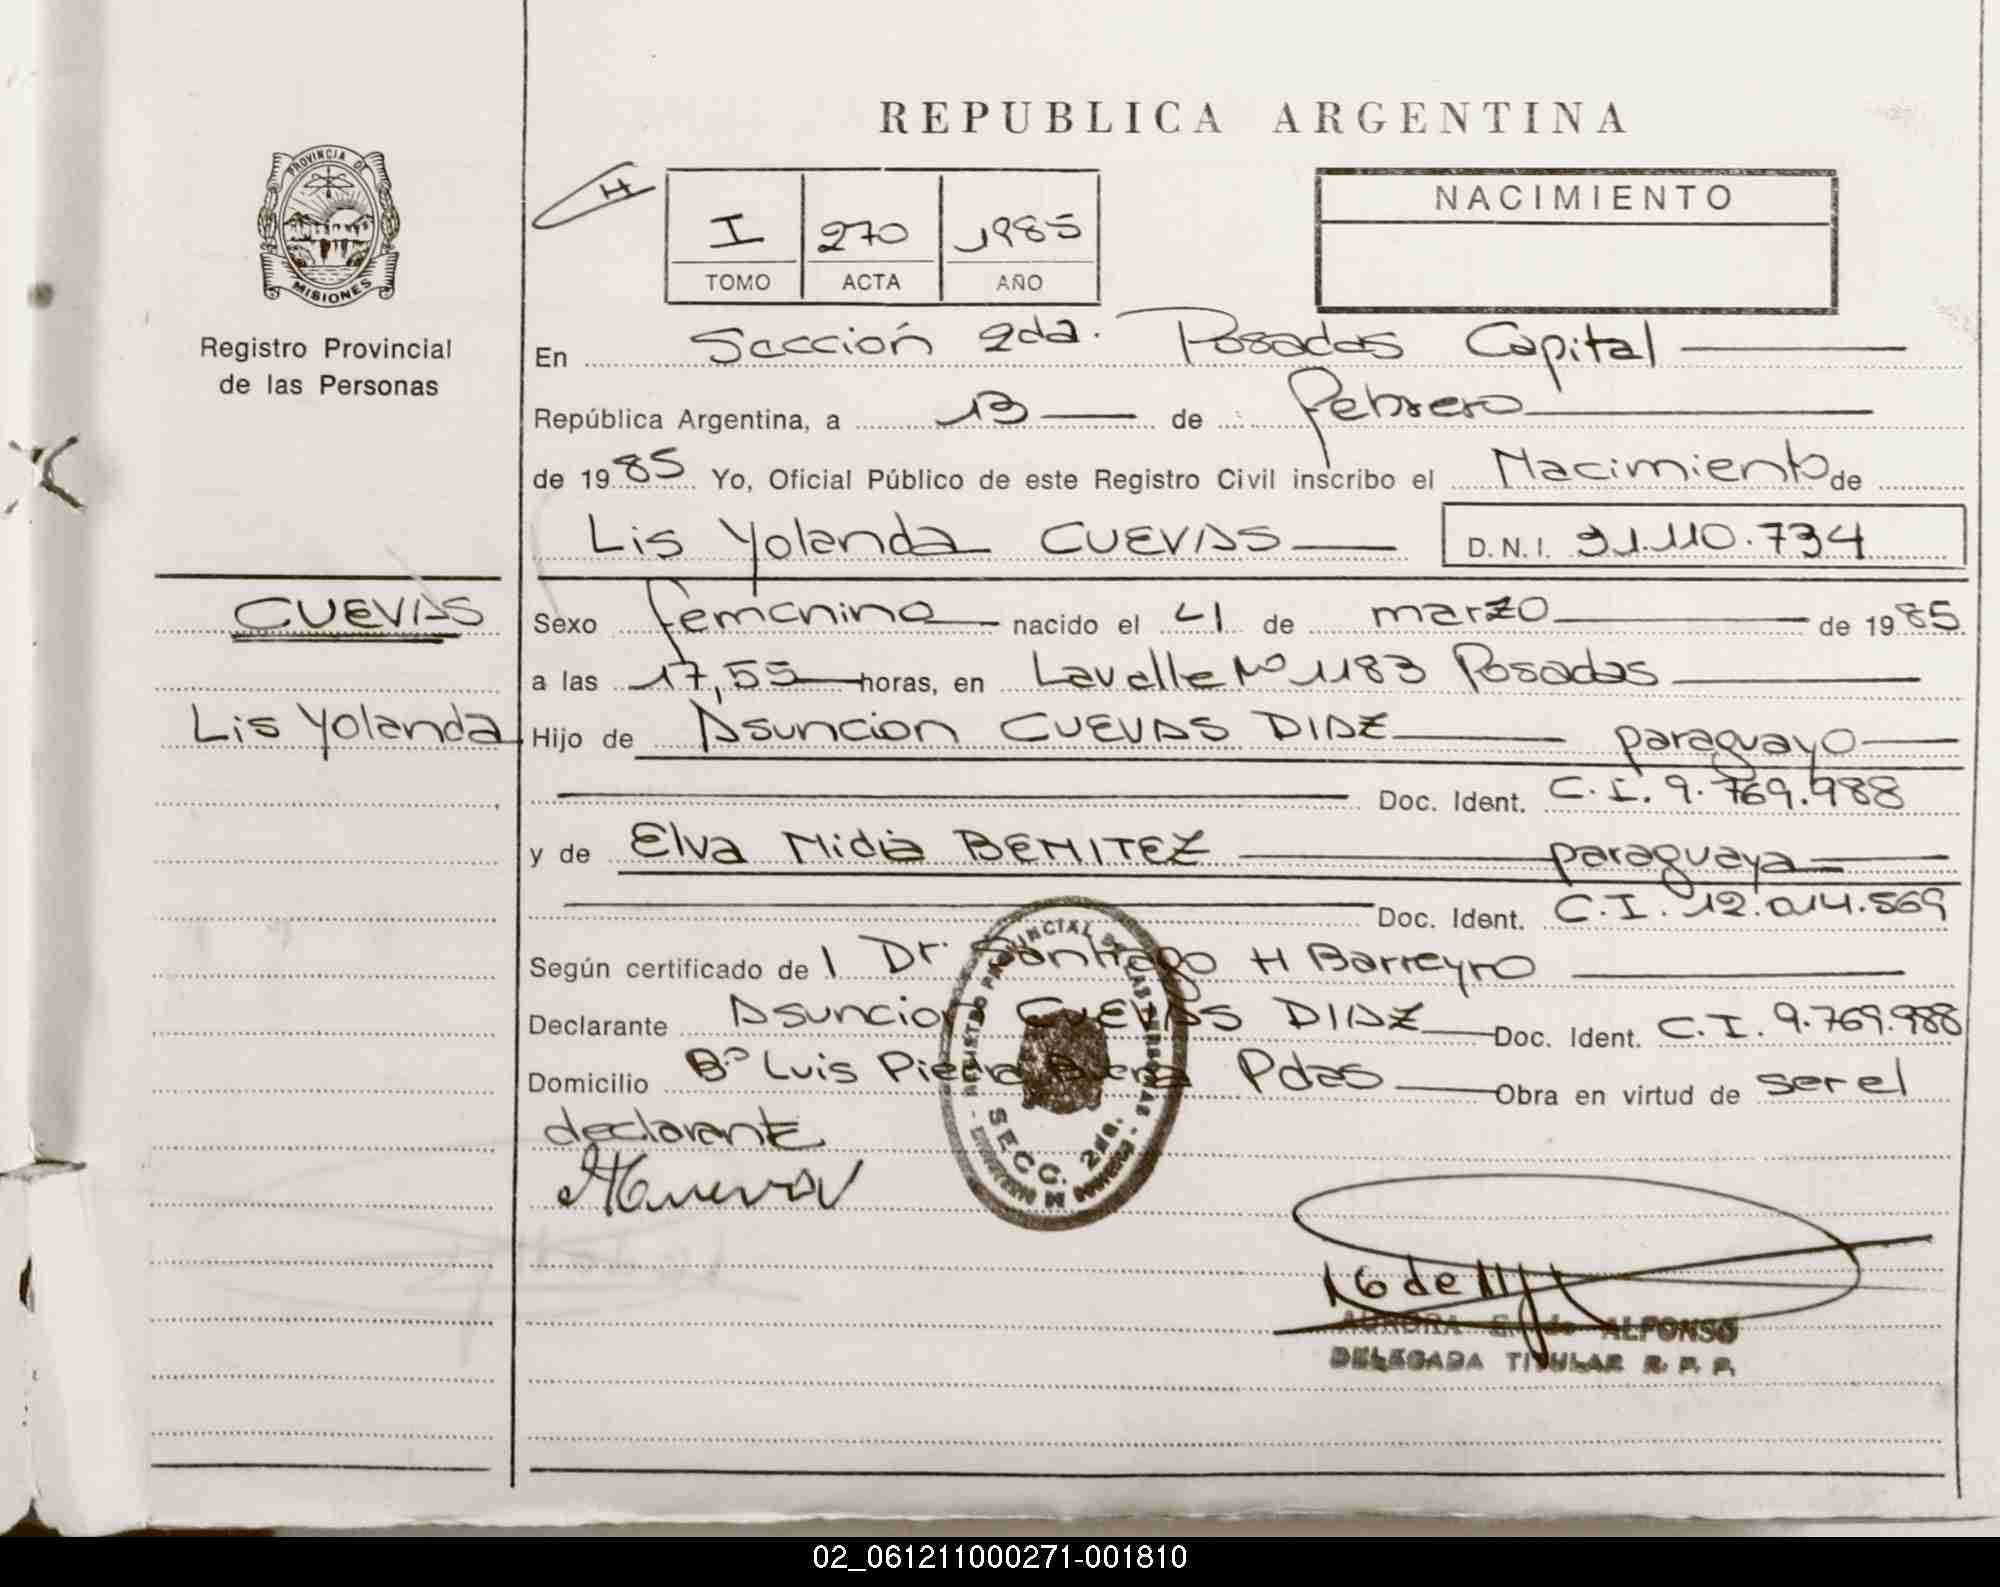 REPUBLICA ARGENTINA
PROVINCIA DE
MISIONES
Registro Provincial
de las Personas
H
I 270 1985
TOMO ACTA AÑO
NACIMIENTO
En Sección 2da. Posadas Capital
República Argentina, a 13 de Febrero
de 1985 Yo, Oficial Público de este Registro Civil inscribo el Nacimiento de
Lis Yolanda CUEVAS D.N.I. 31.110.734
CUEVAS
Lis Yolanda
Sexo femenino nacido el de marzo de 1985
a las 17,55 horas, en Lavalle Nº 1183 Posadas
Hijo de Asuncion CUEVAS DIAZ paraguayo
Doc. Ident. C.I. 9.769.988
y de Elva Nidia BENITEZ paraguaya
Doc. Ident. C.I. 12.014.569
Según certificado de l Dr. Santiago H Barreyro
Declarante Asuncion CUEVAS DIAZ Doc. Ident. C.I. 9.769.988
Domicilio Bº Luis Piedra Buena Pdas Obra en virtud de ser el
declarante
REGISTRO PROVINCIAL DE LAS PERSONAS
SECC. 2da.
AURORA E. de ALFONSO
DELEGADA TITULAR R. P. P.
02_061211000271-001810